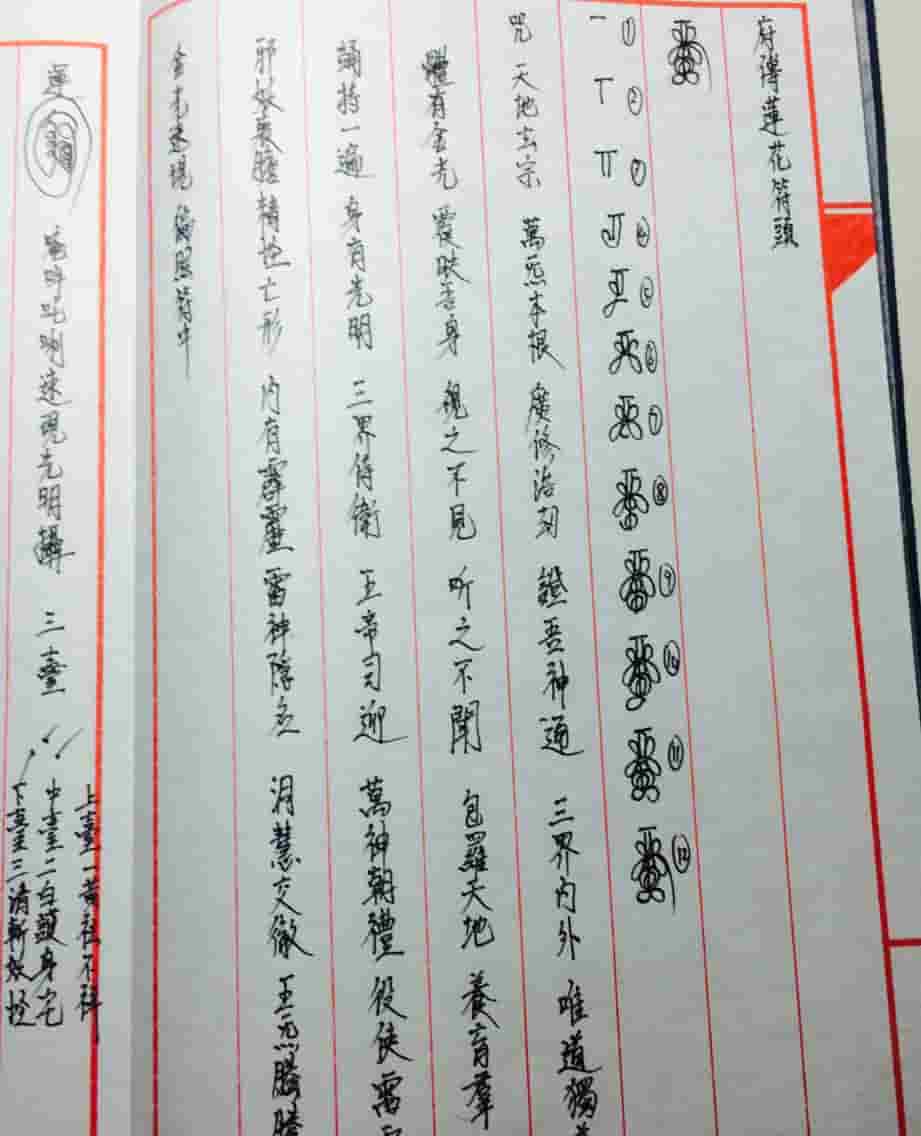 府傳蓮花符頭
① ② ⑦ ④ ⑤ ⑥ ⑦ ⑧ ⑨ ⑩ ⑪ ⑫
咒 天地玄宗 萬炁本根 廣修浩劫 證吾神通 三界内外 唯道獨
體有金光 覆映吾身 視之不見 听之不聞 包羅天地 養育羣
誦持一遍 身有光明 三界侍衛 五帝司迎 萬神朝禮 役使雷
邪妖喪膽 精怪亡形 内有霹靂 雷神隱名 洞慧交徹 五炁騰騰
金光速現 照符中
運 吽吒唎速現光明攝 三臺
上臺一黃祛不祥
中臺二白護身宅
下臺三清斬妖怪